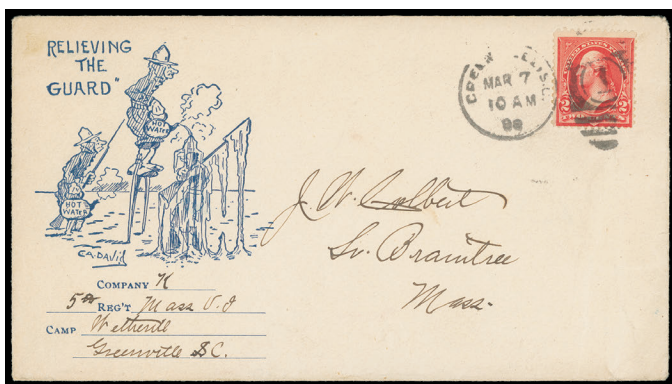 RELIEVING
THE
GUARD"
HOT
WATER
HOT
WATER
C.A. DAVID
COMPANY K
5th REG'T Mass V. I
CAMP Wetherill
Greenville S.C.
MAR 7
10 AM
99
2 2
J. W. Colbert
So. Braintree
Mass.